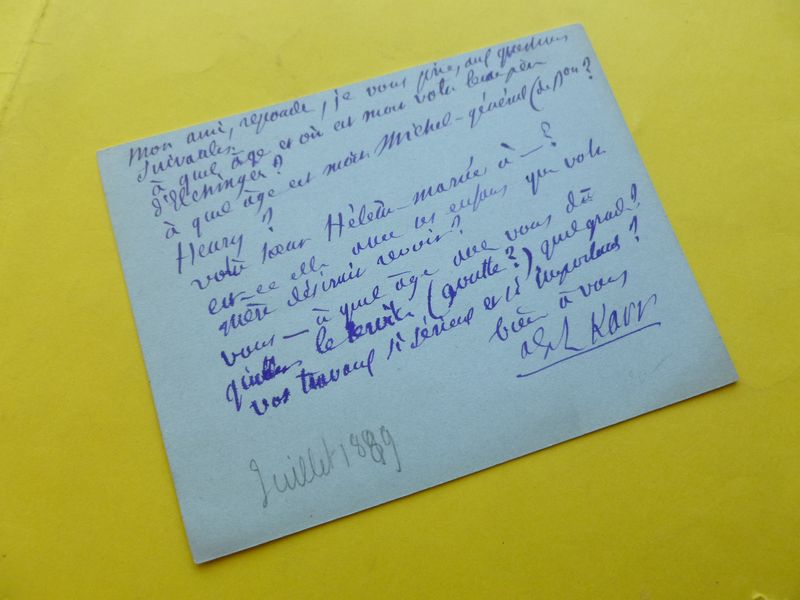 mon ami, réponds, je vous prie, aux questions
suivantes
à quel âge et où est mort votre beau-père
d'Elchingen?
à quel âge est mort Michel - général (de Don?
Henry?
votre sœur Hélène - mariée à — ?
est-ce elle avec les enfans que votre
mère désirait revoir?
vous — à quel âge avez vous dû
quitter le service (goutte?) quel grade?
vos travaux si sérieux et si importans?
bien à vous
alph Karr
Juillet 1889